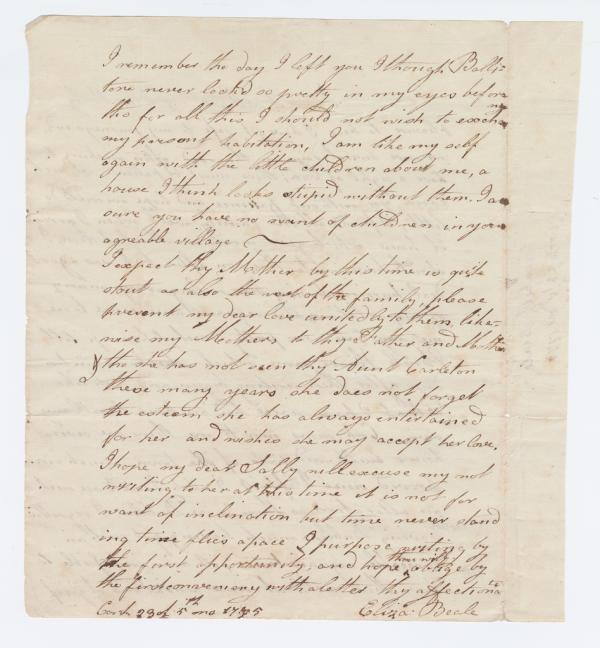 I remember the day I left you I though Balli=
tore never looked so pretty in my eyes before
tho for all this I should not wish to exchang
my persent habitation, I am like my self
again with the little children about me, a
house I think looks stupid without them. I am
sure you have no want of children in your
agreable village
I expect thy Mother by this time is quite
stout as also the rest of the family, please
present my dear love unitedly to them, like=
wise my Mothers to thy Father and Mother
tho she has not seen thy Aunt Carleton
these many years she does not forget
the esteem she has always entertained
for her and wishes she may accept her love.
I hope my dear Sally will excuse my not
writing to her at this time it is not for
want of inclination but time never stand
ing time flies apace I purpose writing by
the first opportunity, and hope thou wilt oblige by
the first conveniency with a letter thy affectionate
Cork 23 of 5th mo 1795 Eliza: Beale